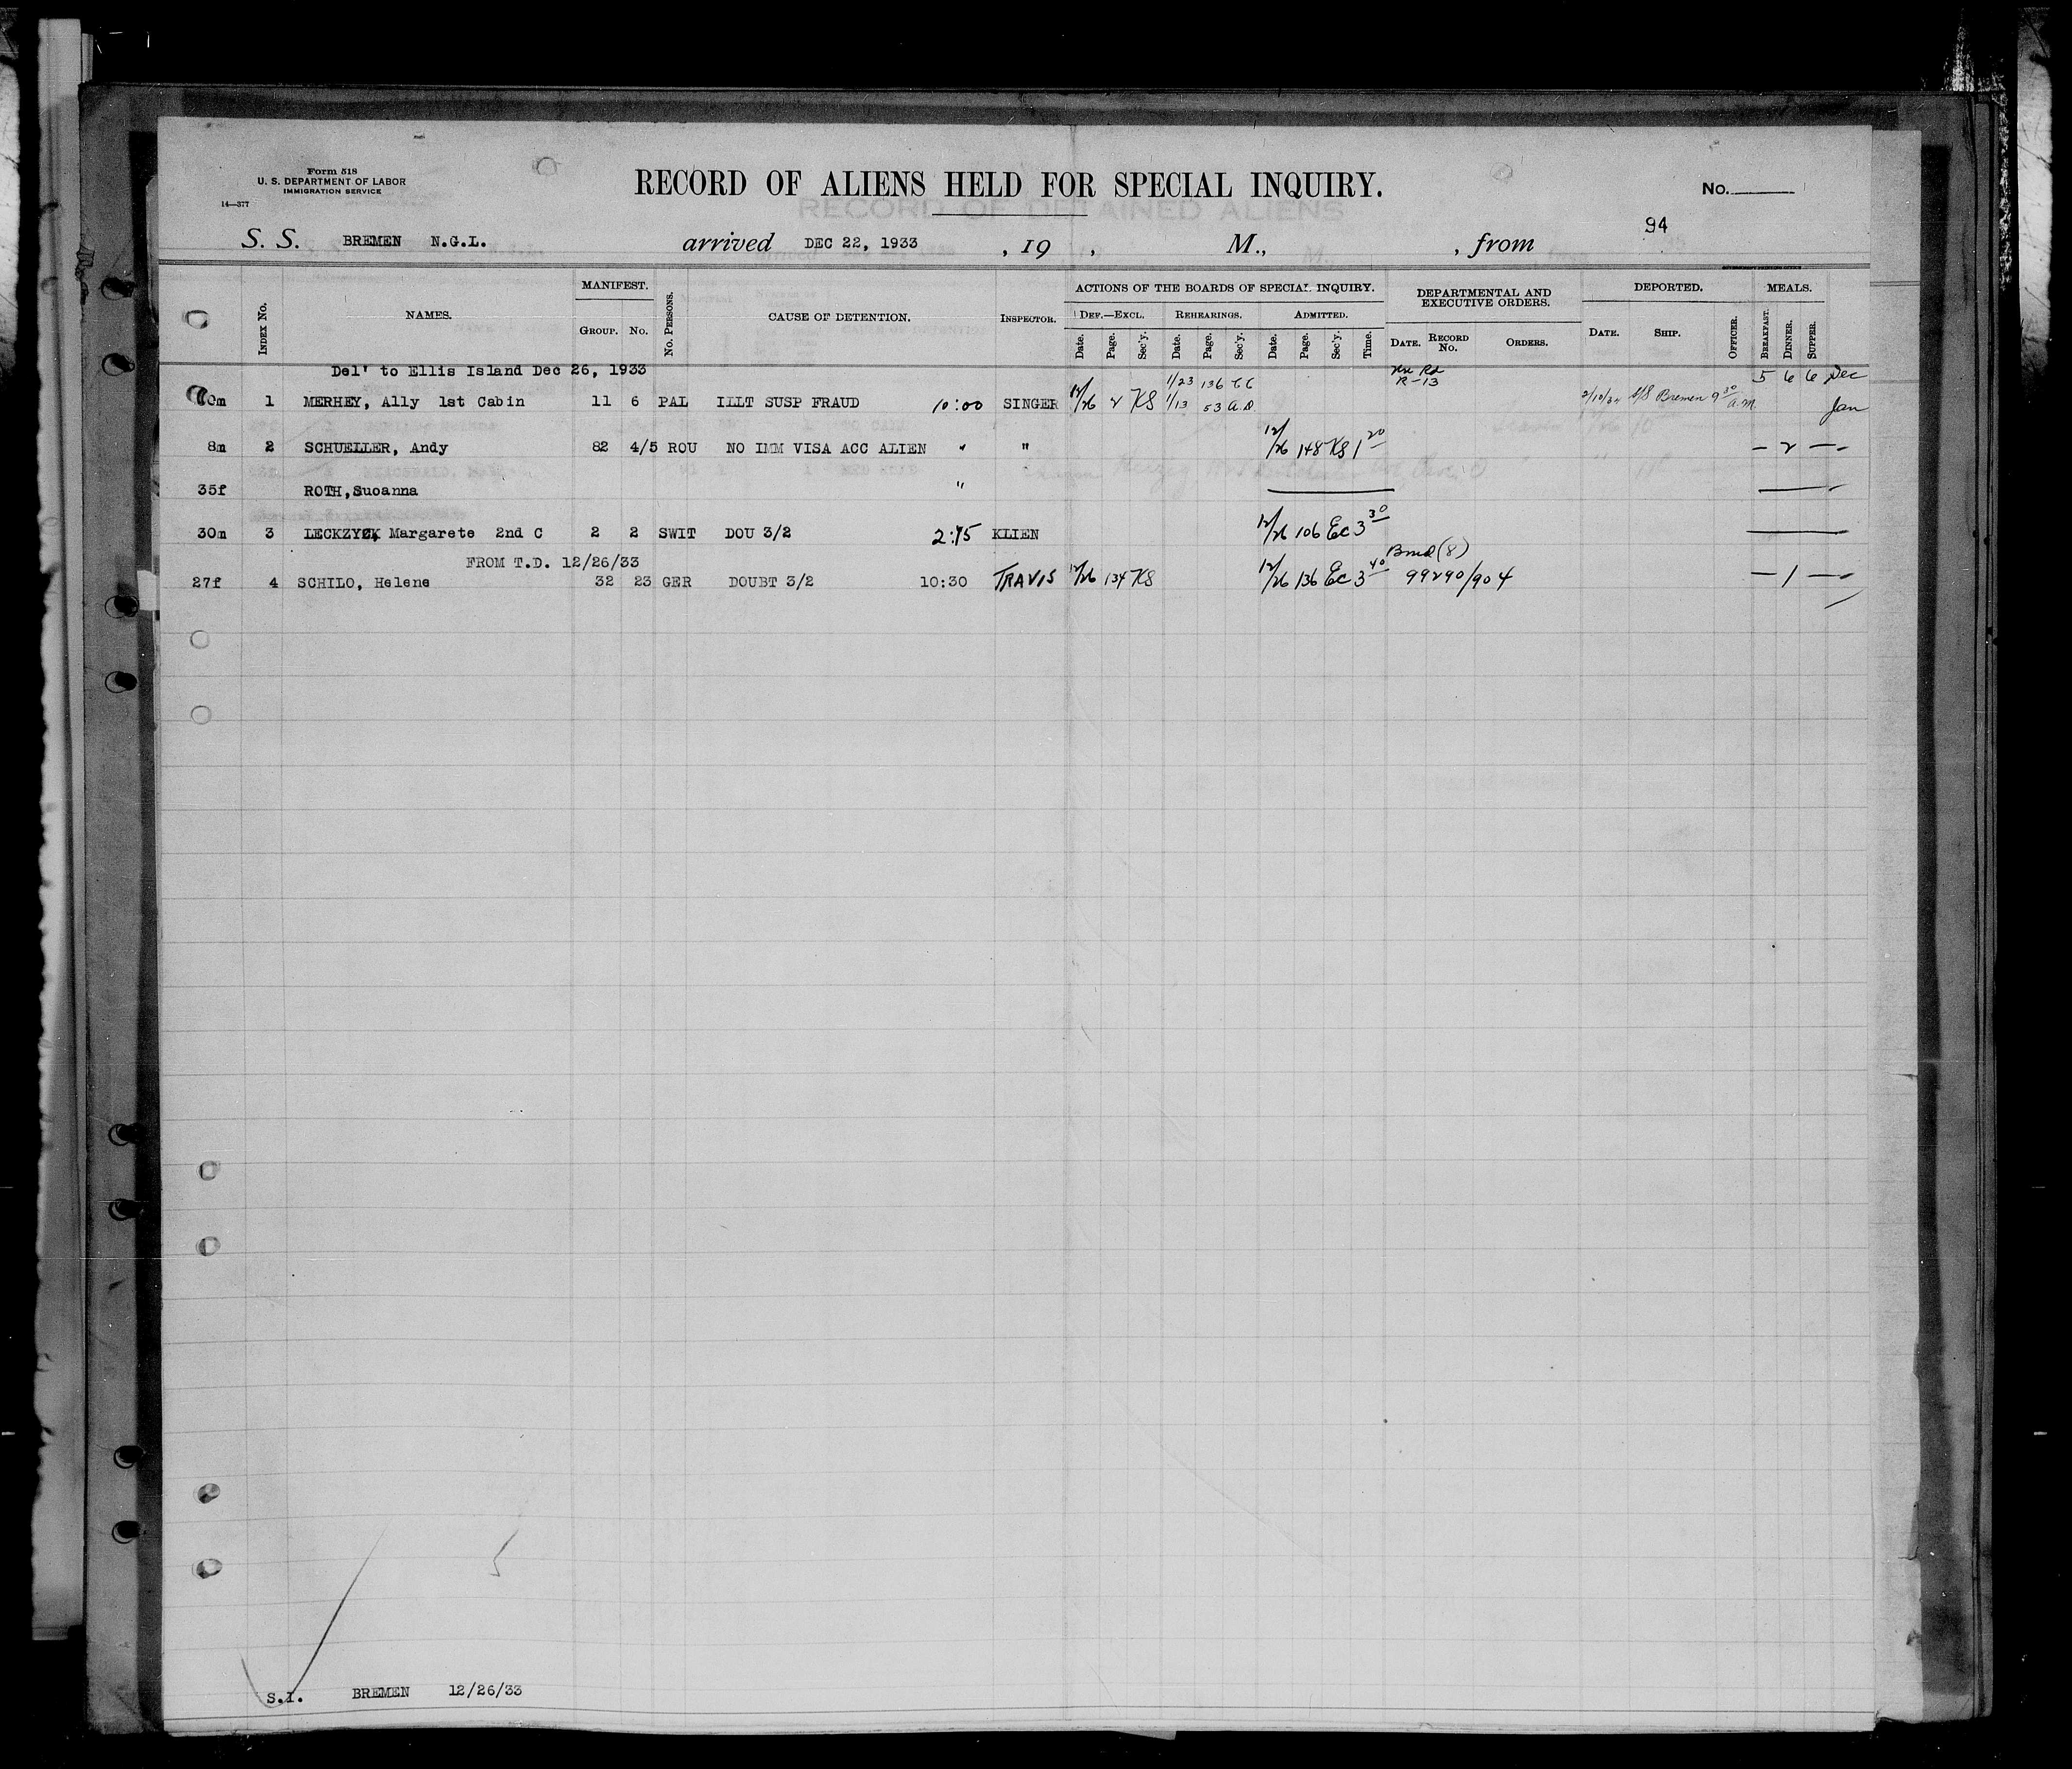 Form 518
U. S. DEPARTMENT OF LABOR
IMMIGRATION SERVICE
14—377
RECORD OF ALIENS HELD FOR SPECIAL INQUIRY.
No.
94
S. S. BREMEN N.G.L. arrived DEC 22, 1933 , 19 , M., , from
INDEX No. NAMES. MANIFEST. GROUP. No. No. PERSONS. CAUSE OF DETENTION. INSPECTOR. ACTIONS OF THE BOARDS OF SPECIAL INQUIRY. DEF.—EXCL. Date. Page. Sec'y. REHEARINGS. Date. Page. Sec'y. ADMITTED. Date. Page. Sec'y. Time. DEPARTMENTAL AND EXECUTIVE ORDERS. DATE. RECORD No. ORDERS. DEPORTED. DATE. SHIP. OFFICER. MEALS. BREAKFAST. DINNER. SUPPER.
Del' to Ellis Island Dec 26, 1933
1/23 136 R-13 5 6 6 Dec
1 MERHEY, Ally 1st Cabin 11 6 PAL ILLT SUSP FRAUD 10:00 SINGER 12/26 2 KS 1/13 53 A.D. 2/10/34 S/S Bremen 9 30 A.M. Jan
8m 2 SCHUELLER, Andy 82 4/5 ROU NO IMM VISA ACC ALIEN " " 12/26 148 KS 1 20 — 2 —
35f ROTH, Suoanna "
30m 3 LECKZYCK, Margarete 2nd C 2 2 SWIT DOU 3/2 2:15 KLIEN 12/26 106 EC 3 30
FROM T.D. 12/26/33
27f 4 SCHILO, Helene 32 23 GER DOUBT 3/2 10:30 TRAVIS 12/26 134 KS 12/26 136 EC 3 40 Bond (8) 99290/904 — 1 —
S.I. BREMEN 12/26/33